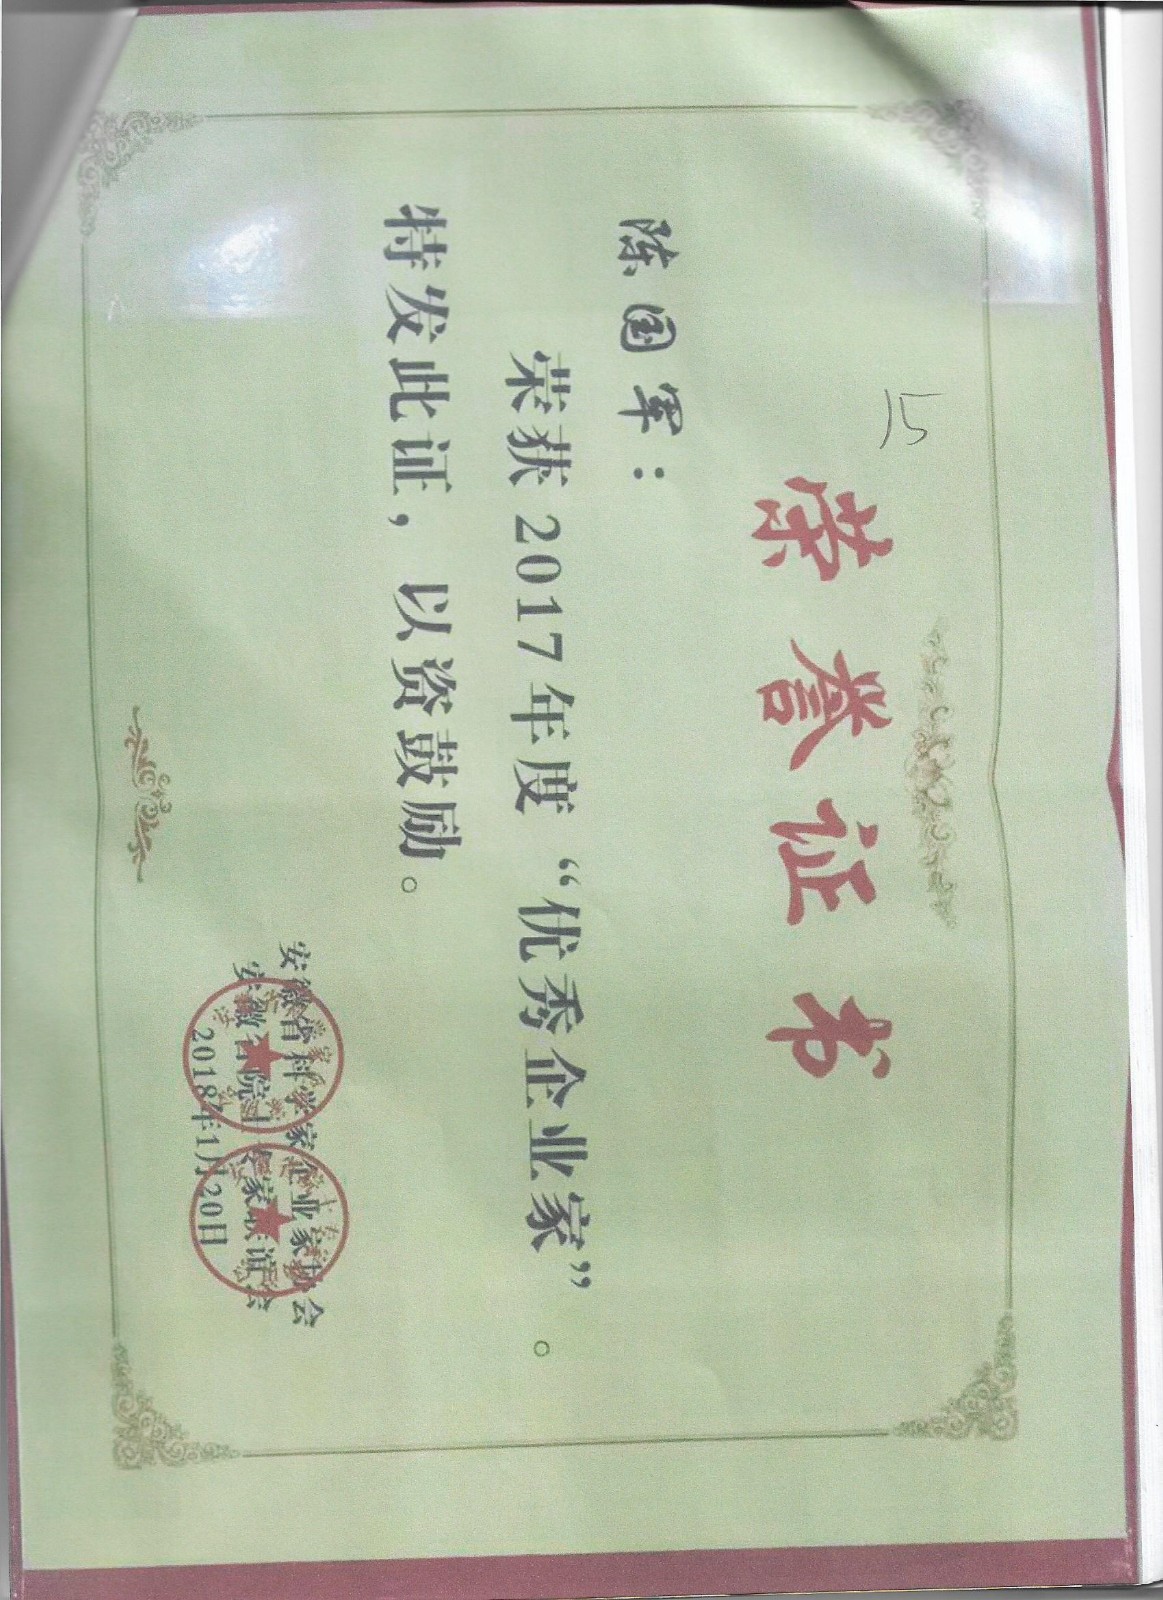 15
荣誉证书
陈国军：
荣获2017年度“优秀企业家”。
特发此证，以资鼓励。
安徽省科学家企业家协会
安徽省院士专家联谊会
2018年1月20日